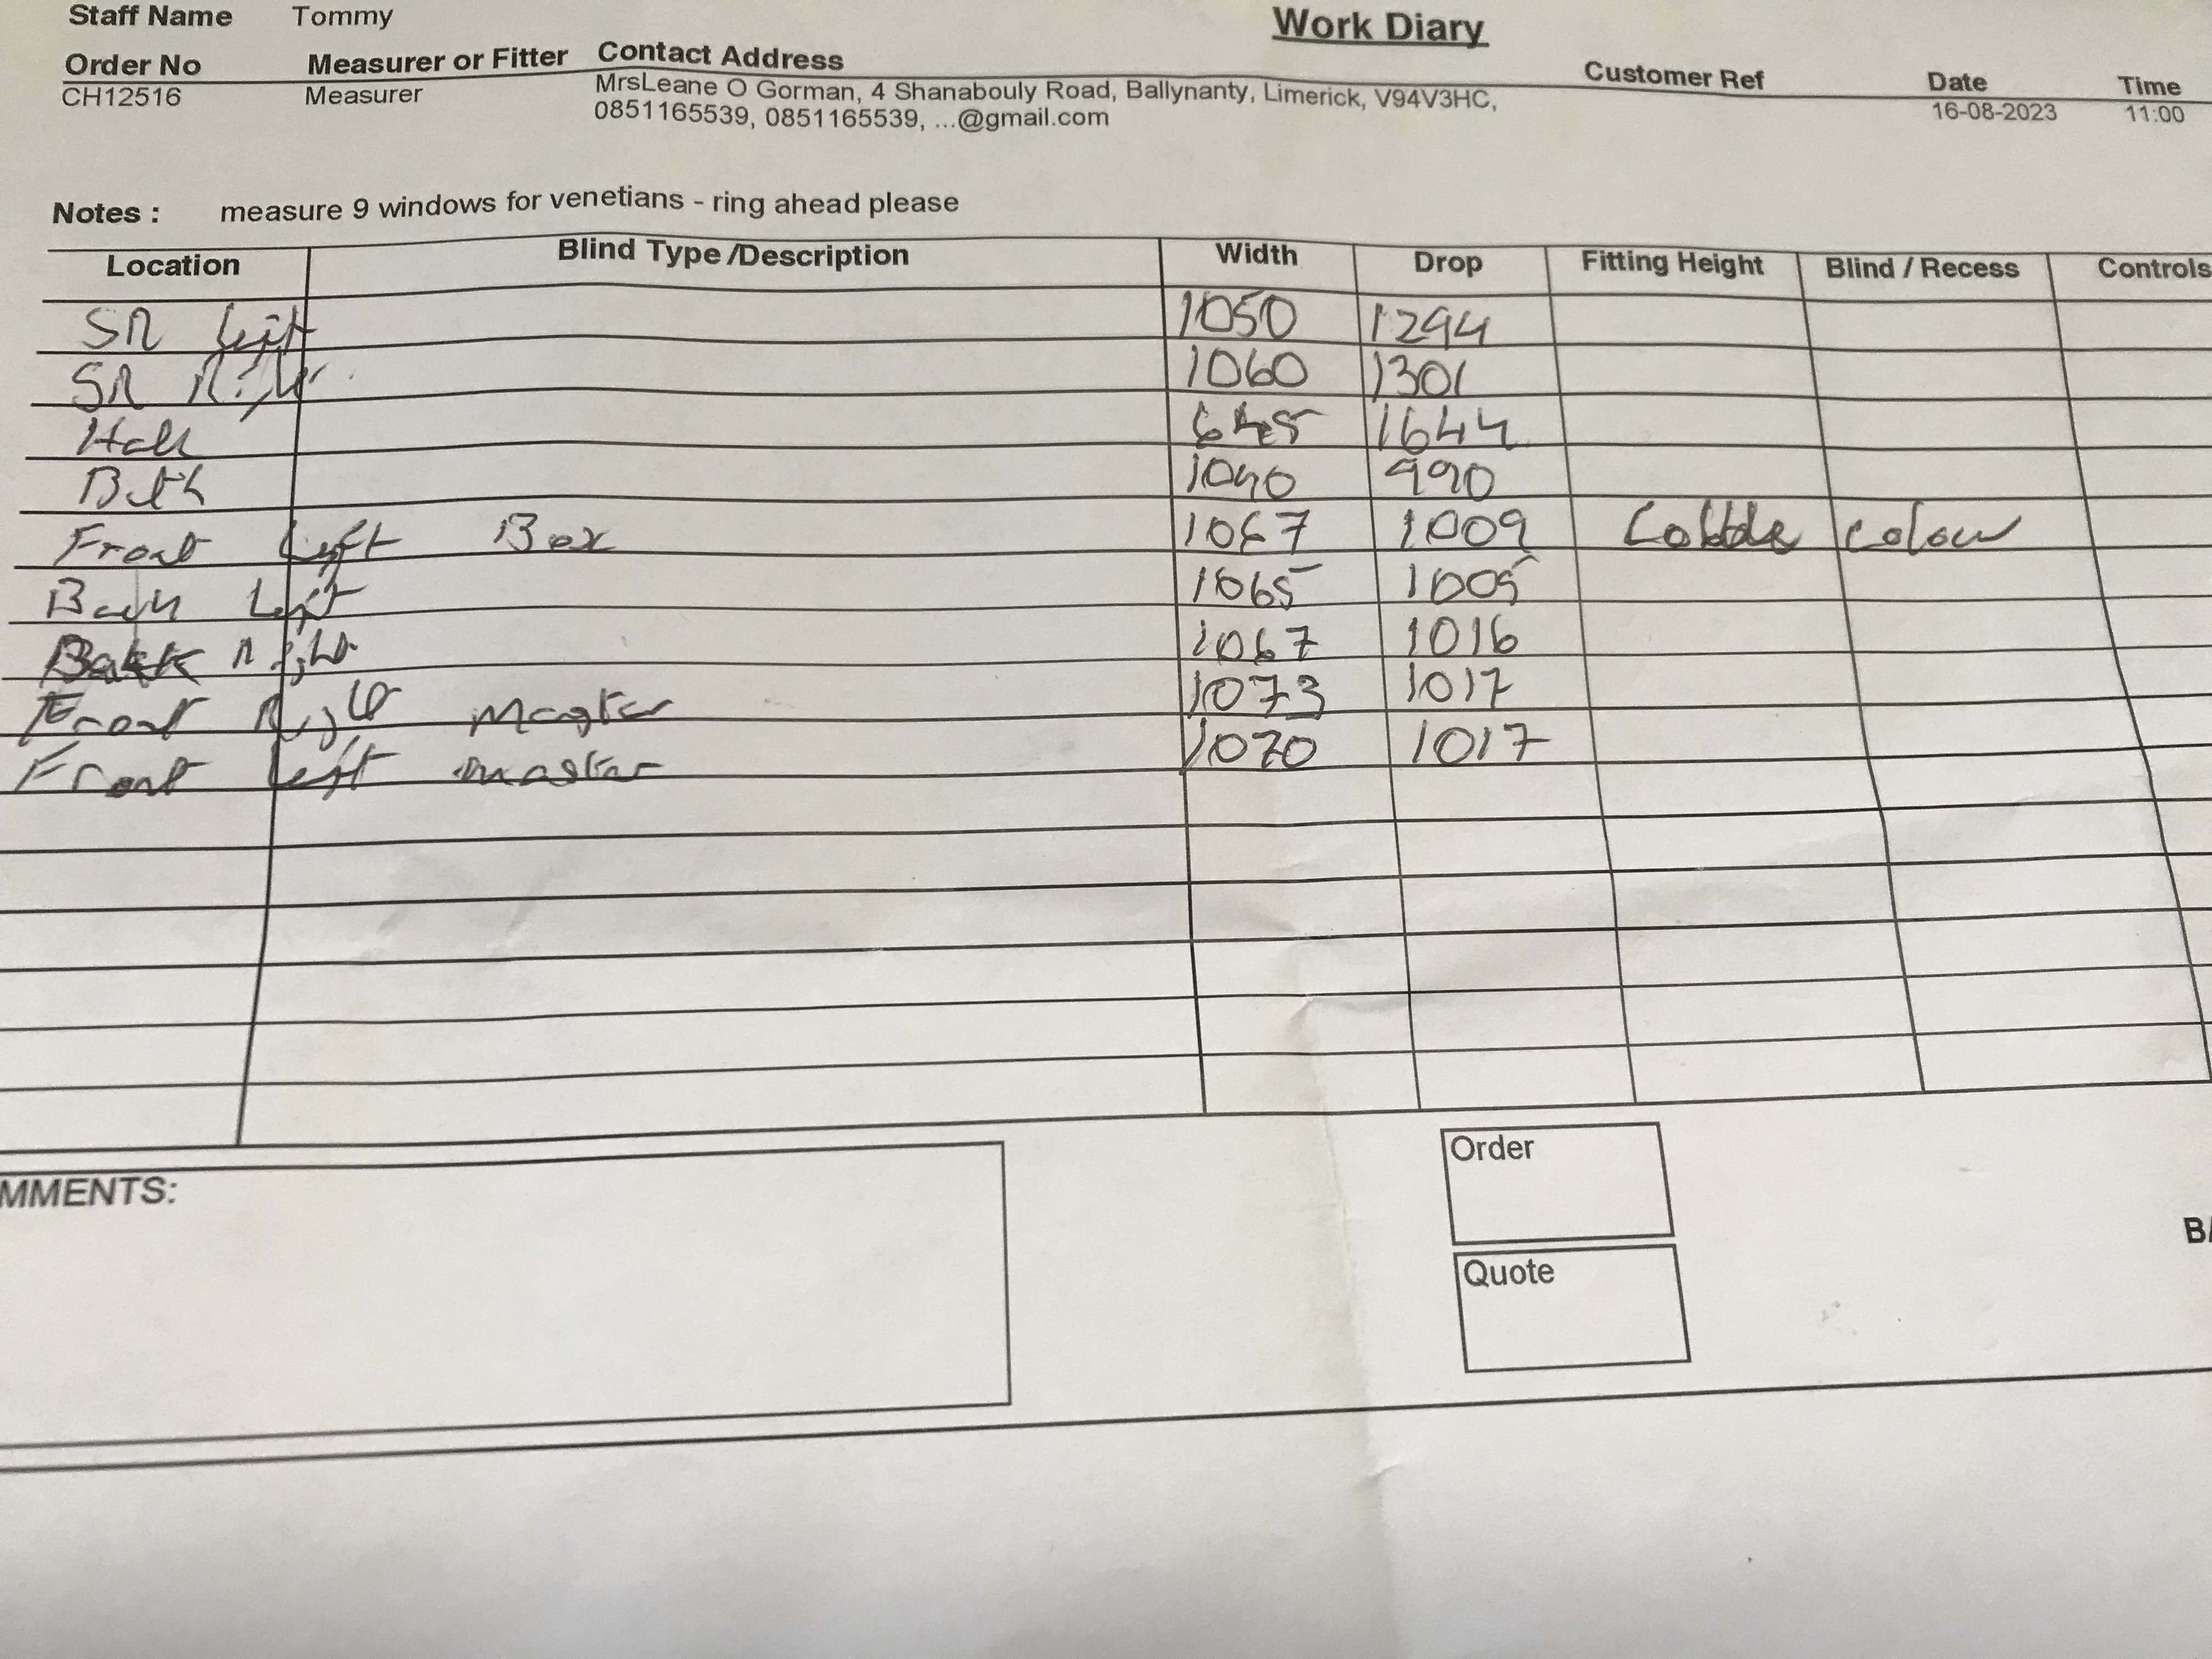 Staff Name Tommy
Work Diary
Order No Measurer or Fitter Contact Address Customer Ref Date Time
CH12516 Measurer MrsLeane O Gorman, 4 Shanabouly Road, Ballynanty, Limerick, V94V3HC, 16-08-2023 11:00
0851165539, 0851165539, ...@gmail.com
Notes : measure 9 windows for venetians - ring ahead please
Location Blind Type /Description Width Drop Fitting Height Blind / Recess Controls
SR Left 1050 1294
SR Right 1060 1301
Hall 645 1644
Bath 1040 990
Front Left Box 1067 1009 colour
Back Left 1065 1005
Back Right 1067 1016
Front Right Master 1073 1017
Front Left master 1070 1017
MMENTS:
Order
Quote